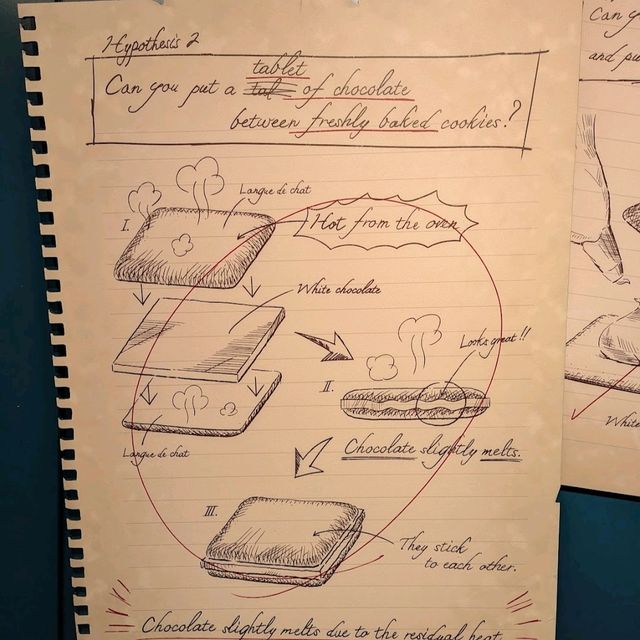 Hypothesis 2
tablet
Can you put a of chocolate
between freshly baked cookies?
Langue de chat
I.
Hot from the oven
White chocolate
Looks great!!
II.
Langue de chat
Chocolate slightly melts.
III.
They stick
to each other.
Chocolate slightly melts due to the residual heat
Can y
and pu
White